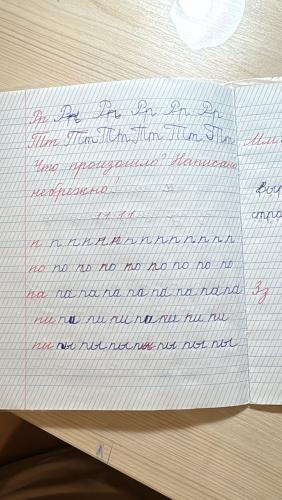 Рр Рр Рр Рр Рр Рр
Тт Тт Тт Тт Тт Тт
Что произошло? Написано
небрежно!
11.11
п п п п п п п п п п п п п
по по по по по по по по по
па па па па па па па па па
пи пи пи пи пи пи пи пи
пы пы пы пы пы пы пы пы
Мм
Вы
стра
Зз